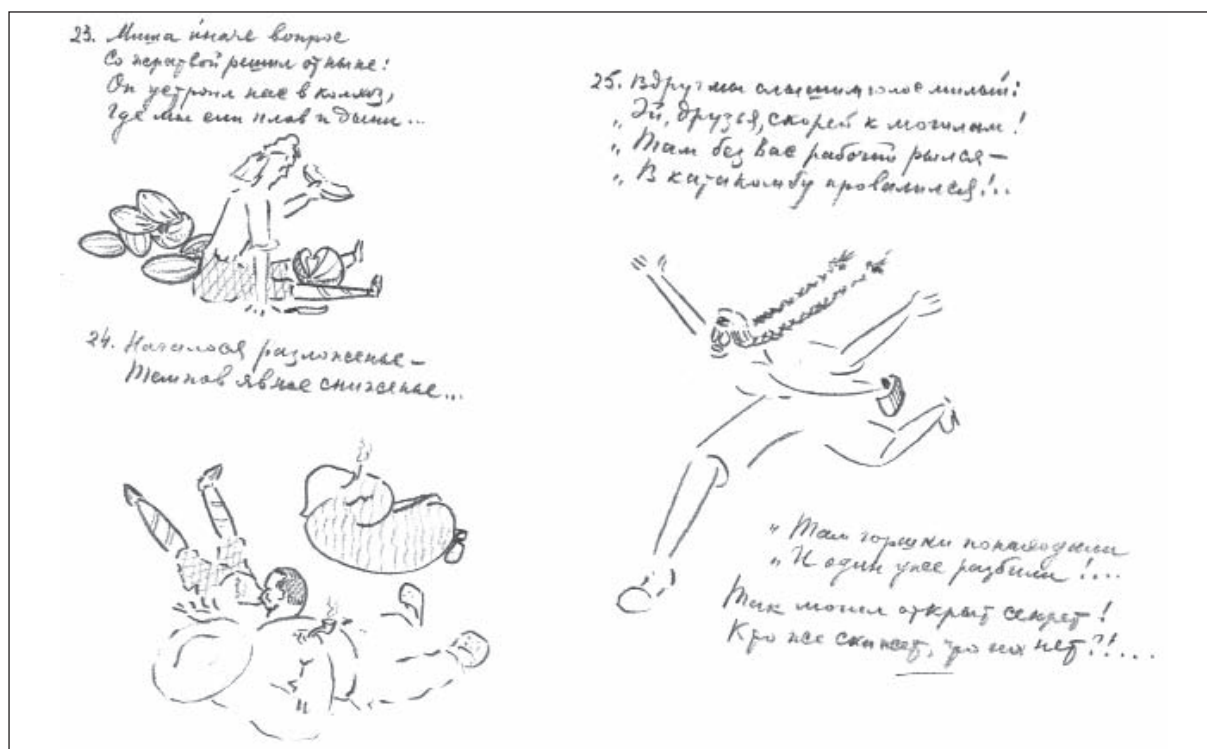 23. Миша иначе вопрос
Со жратвой решил отныне:
Он устроил нас в колхоз,
Где мы ели плов и дыни...
24. Началося разложенье –
Темпов явное сниженье...
25. Вдруг мы слышим голос милый:
„Эй, друзья, скорей к могилам!
„Там без вас рабочий рылся –
„В катакомбу провалился!..
„Там горшки понаходили
„И один уже разбили!...
Так могил открыт секрет!
Кто же скажет, что их нет?!....